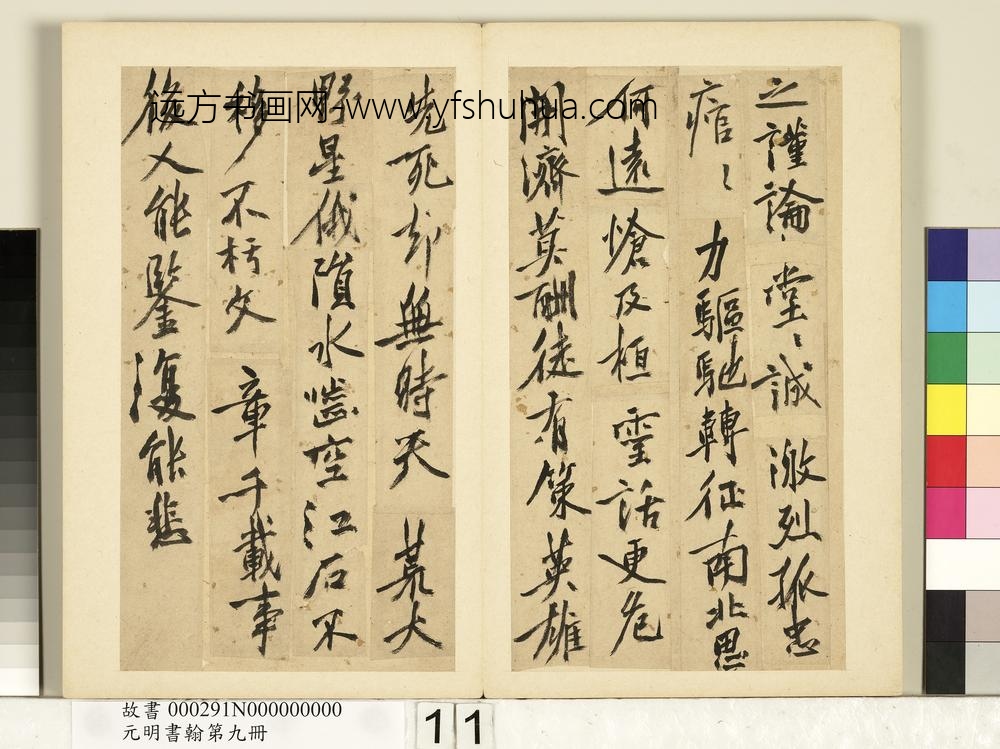 之謹論堂〻誠激烈孤忠
痯〻力驅馳轉征南北思
何遠愴及桓靈話更危
開濟莫酬徒有策英雄
死却無時天荒大
野星俄隕水嚙空江石不
移不朽文章千載事
後人能鑒復能悲
远方书画网 www.yfshuhua.com
故書 000291N000000000
元明書翰第九冊
11